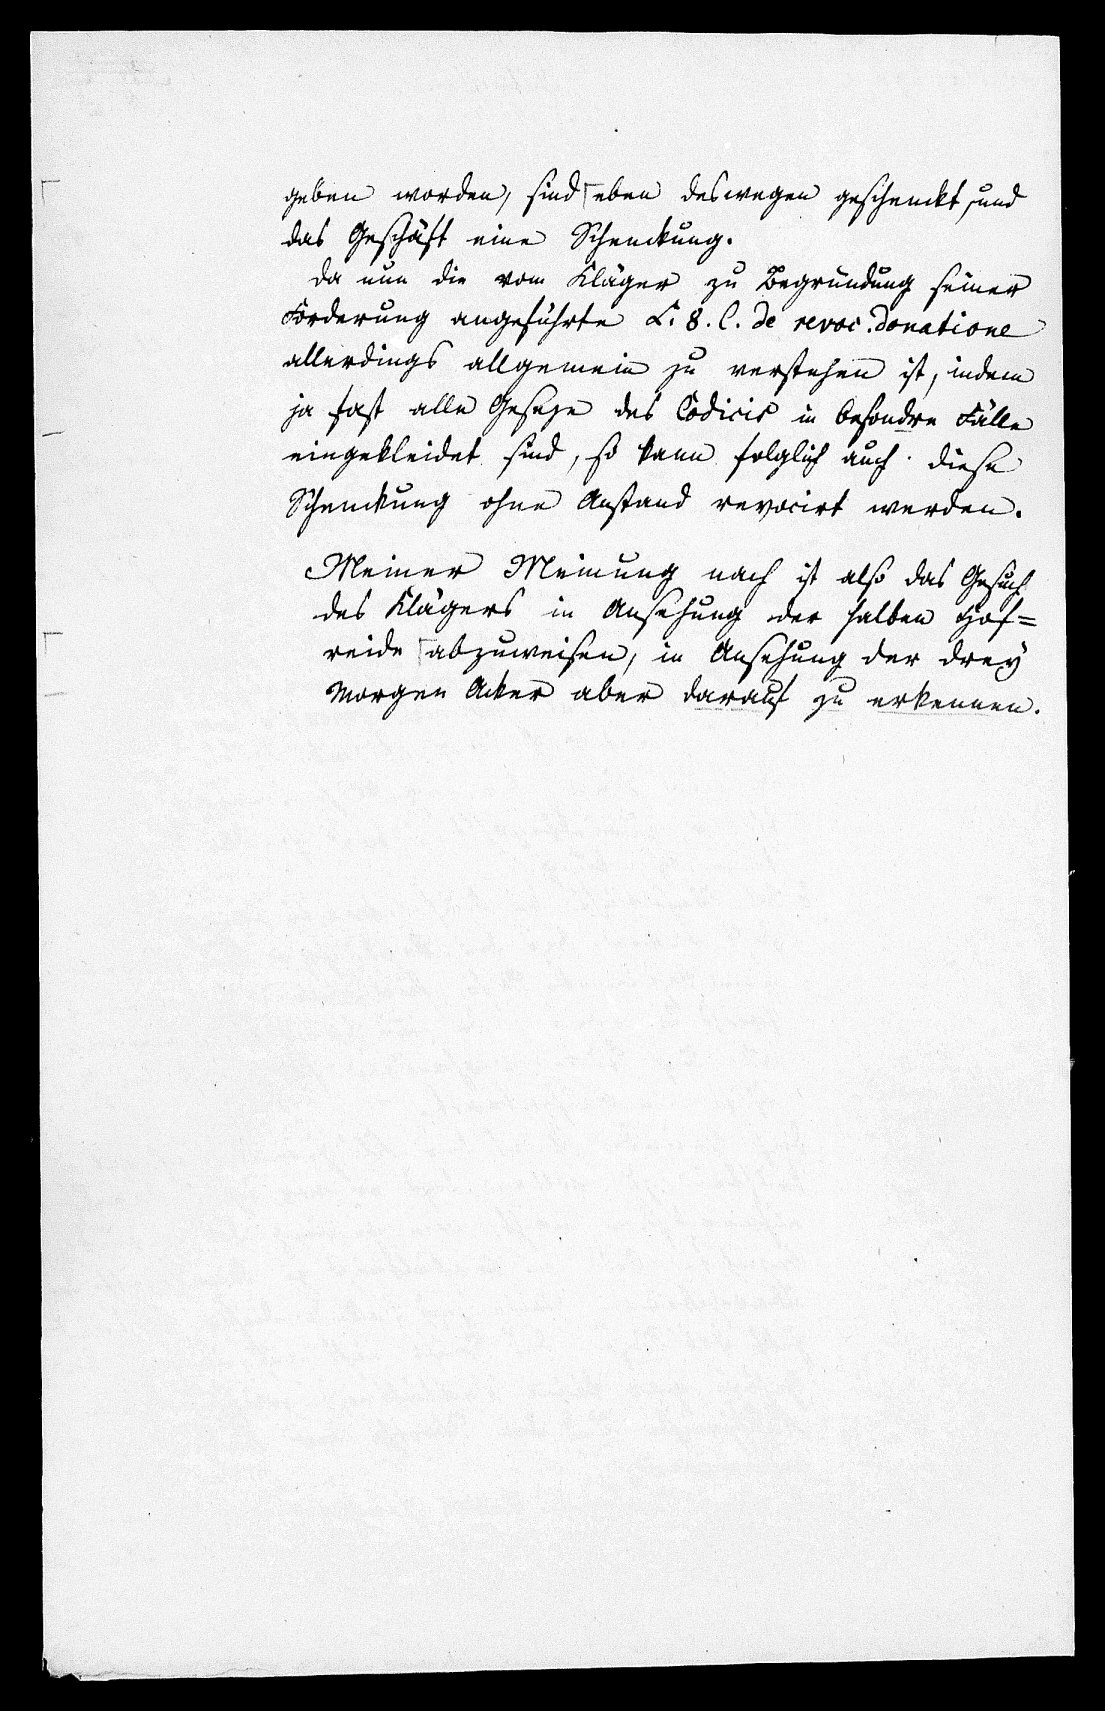 geben worden, sind eben deswegen geschenckt, und
das Geschäft eine Schenckung.
Da nun die vom Kläger zu Begründung seiner
Forderung angeführte L. 8. C. de revoc. donatione
allerdings allgemein zu verstehen ist, indem
ja fast alle Geseze des Codicis in besondre Fälle
eingekleidet sind, so kann folglich auch diese
Schenckung ohne Anstand revocirt werden.
Meiner Meinung nach ist also das Gesuch
des Klägers in Ansehung der halben Hof=
reide abzuweisen, in Ansehung der drey
Morgen Acker aber darauf zu erkennen.